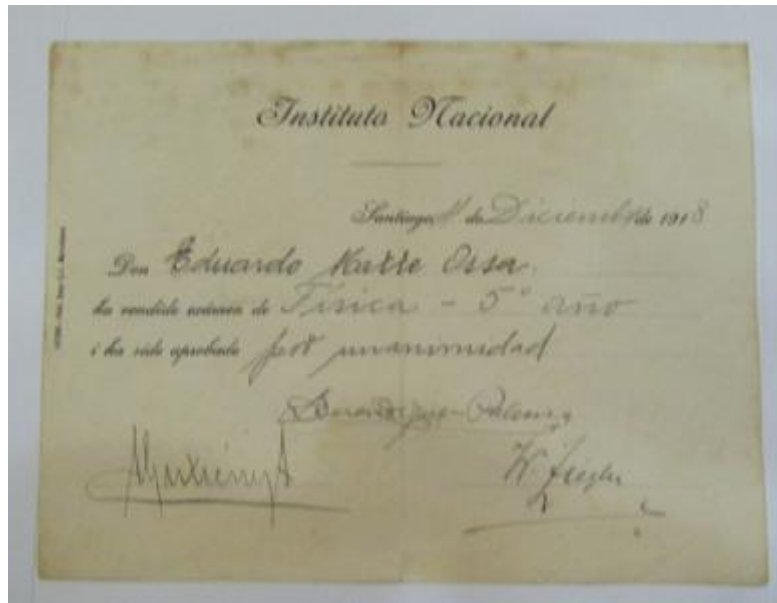 Instituto Nacional
Santiago, de Diciembre de 1918
Don Eduardo Matte Ossa
ha rendido exámen de Física - 5° año
i ha sido aprobado por unanimidad
W. Ziegler